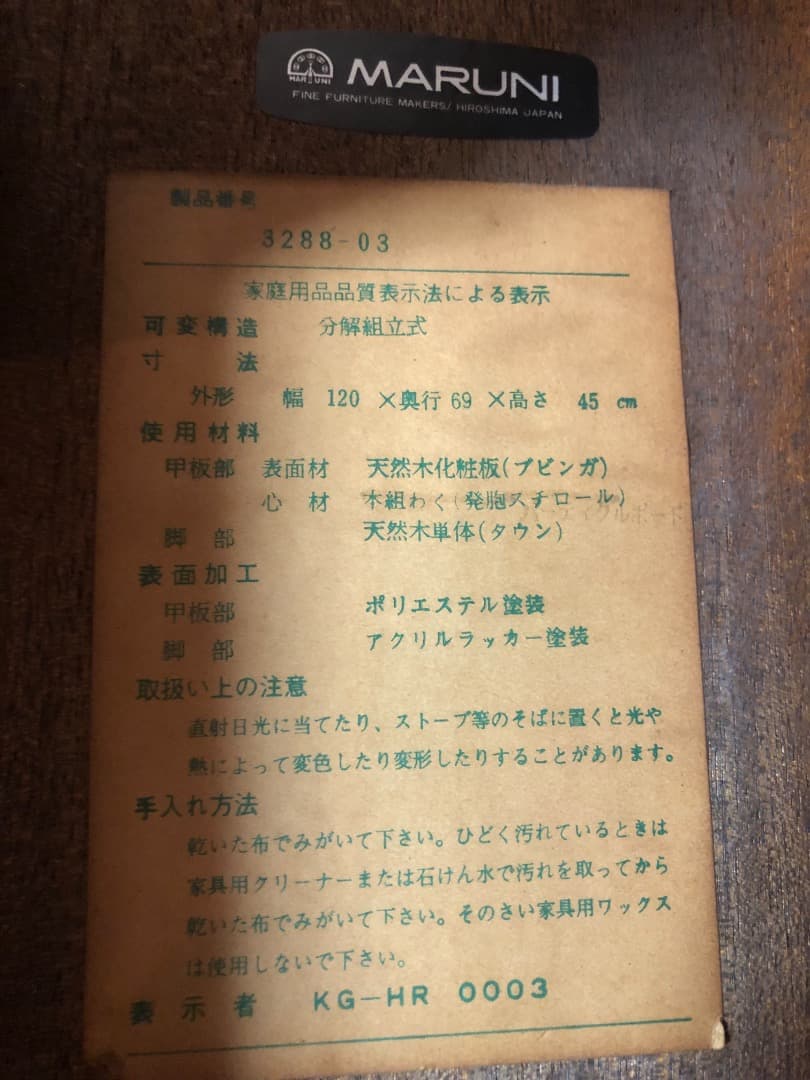 MARUNI
MARUNI
FINE FURNITURE MAKERS/ HIROSHIMA JAPAN
製品番号
3288-03
家庭用品品質表示法による表示
可変構造 分解組立式
寸法
外形 幅 120 ×奥行 69 ×高さ 45 cm
使用材料
甲板部 表面材 天然木化粧板(ブビンガ)
心材 木組わく(発胞スチロール)
脚部 天然木単体(タウン)
表面加工
甲板部 ポリエステル塗装
脚部 アクリルラッカー塗装
取扱い上の注意
直射日光に当てたり、ストーブ等のそばに置くと光や
熱によって変色したり変形したりすることがあります。
手入れ方法
乾いた布でみがいて下さい。ひどく汚れているときは
家具用クリーナーまたは石けん水で汚れを取ってから
乾いた布でみがいて下さい。そのさい家具用ワックス
は使用しないで下さい。
表示者 KG-HR 0003